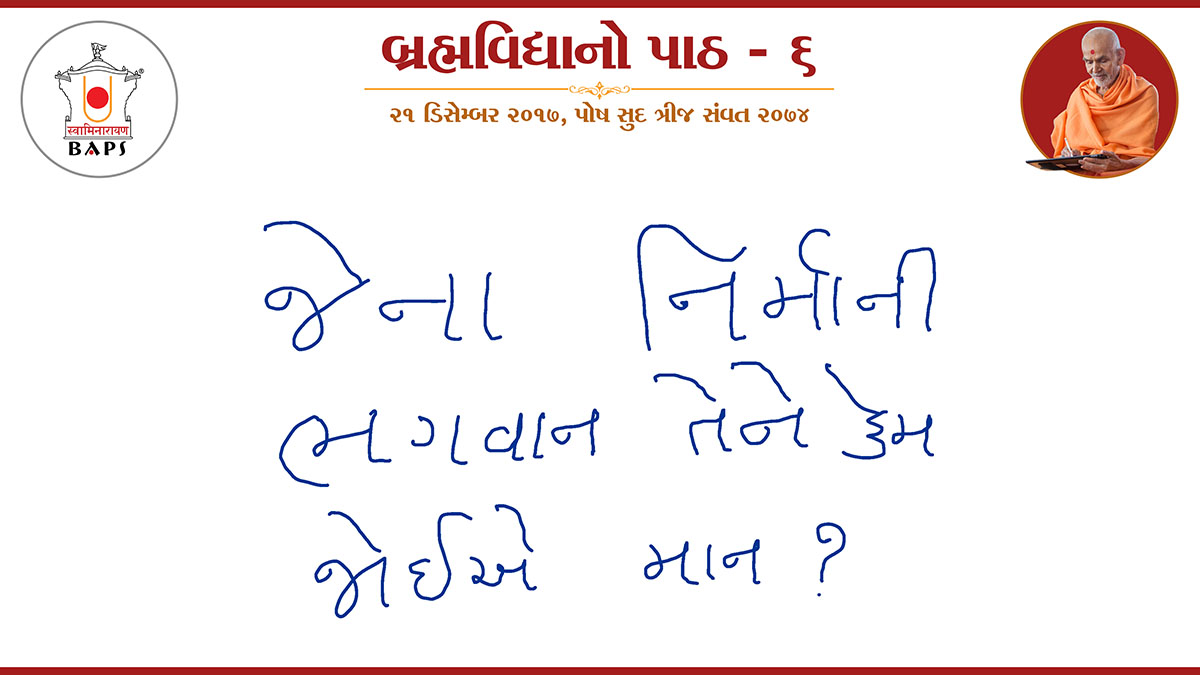 બ્રહ્મવિદ્યાનો પાઠ - ૬
૨૧ ડિસેમ્બર ૨૦૧૭, પોષ સુદ ત્રીજ સંવત ૨૦૭૪
स्वामिनारायण
BAPS
જેના નિર્માની
ભગવાન તેને કેમ
જોઈએ માન ?